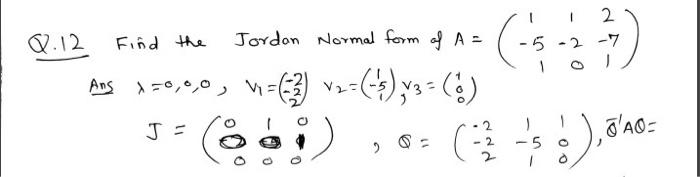 Q.12 Find the Jordan Normal form of A = ( 1 1 2
-5 -2 -7
1 0 1 )
Ans λ=0,0,0, V1=(-2 -2 2) V2=(1 -5 1), V3=(1 0 0)
J = ( 0 1 0
0 0 1
0 0 0 ) , Q = ( -2 1 1
-2 -5 0
2 1 0 ), Q⁻¹AQ=